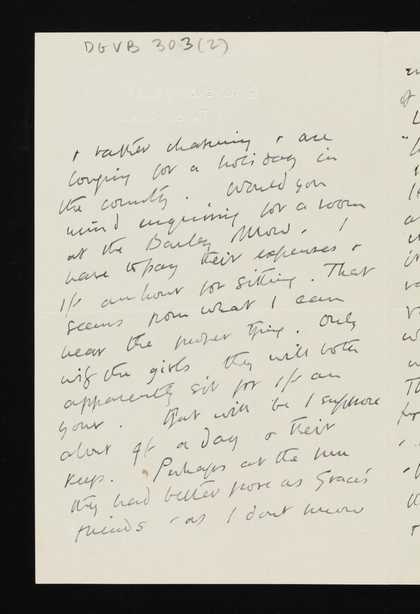 DGVB 303(2)
& rather charming & are
longing for a holiday in
the country. Would you
mind enquiring for a room
at the Barley Mow. I
have to pay their expenses &
1/- an hour for sitting. That
seems from what I can
hear the proper thing. Only
with the girls they will both
apparently sit for 1/- an
hour. That will be I suppose
about 9/- a day & their
keep. Perhaps at the inn
they had better pose as Grace's
friends as I dont know